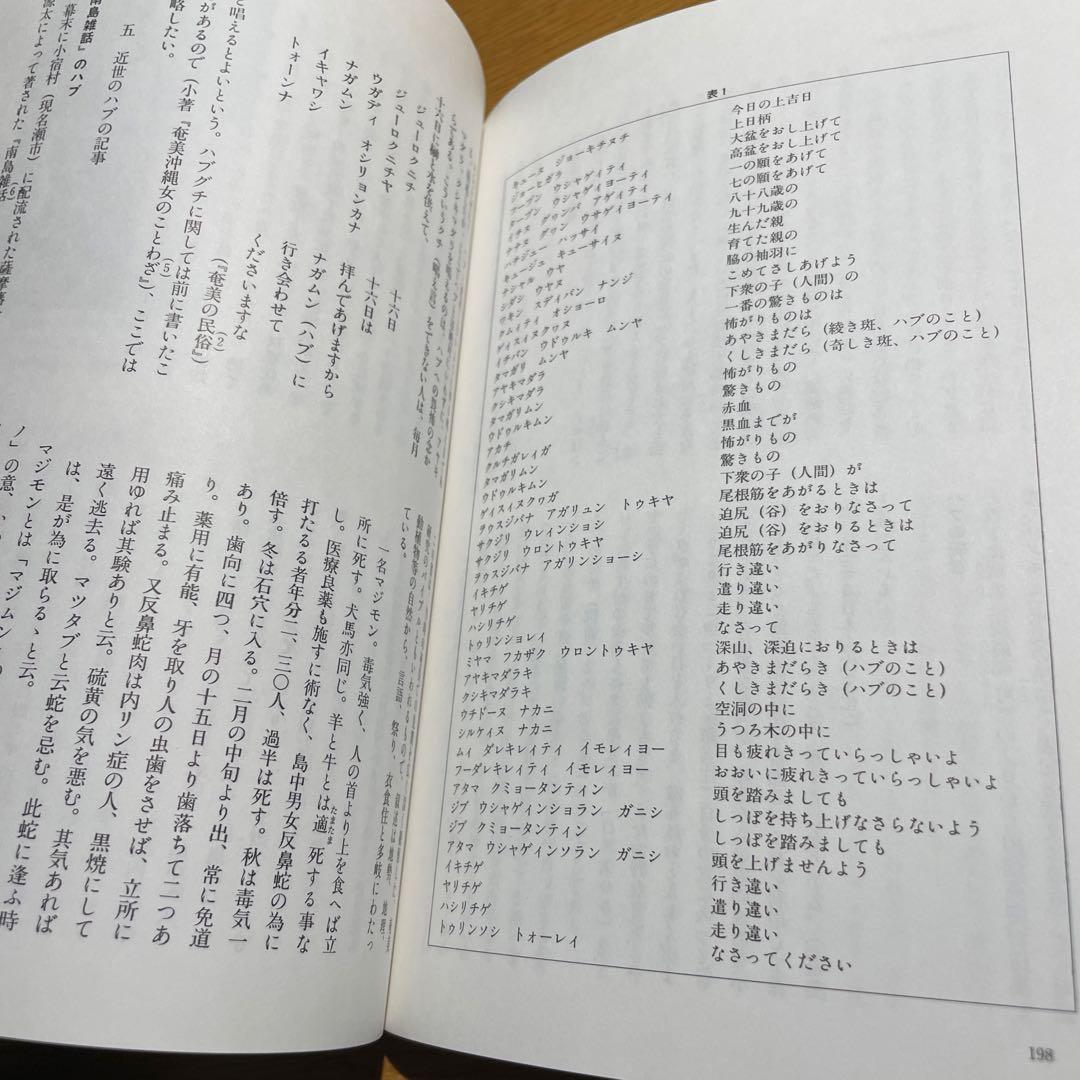 を唱えるとよいという。ハブグチに関しては前に書いたこ
があるので（小著『奄美沖縄女のことわざ』(5)、ここでは
略したい。
五　近世のハブの記事
南島雑話』のハブ
幕末に小宿村（現名瀬市）に配流された薩摩
源太によって著された『南島雑話(6)
十六日に
をできない人は、毎月
ジューロクニチ　十六日
ジューロクニチヤ　十六日は
ウガディ　オシリョンカナ　拝んであげますから
ナガムン　ナガムン（ハブ）に
イキヤワシ　行き会わせて
トォーンナ　くださいますな
（『奄美の民俗』(2)）
動植物等の自然から、言語、祭り、衣食住と多岐にわたっ
ている。
一名マジモン。毒気強く、人の首より上を食へば立
所に死す。犬馬亦同じ。羊と牛とは適死する事な
たまたま
し。医療良薬も施すに術なく、島中男女反鼻蛇の為に
打たるる者年分二、三〇人、過半は死す。秋は毒気一
倍す。冬は石穴に入る。二月の中旬より出、常に免道
あり。歯向に四つ、月の十五日より歯落ちて二つあ
り。薬用に有能、牙を取り人の虫歯をさせば、立所に
痛み止まる。又反鼻蛇肉は内リン症の人、黒焼にして
用ゆれば其験ありと云。硫黄の気を悪む。其気あれば
遠く逃去る。マツタブと云蛇を忌む。此蛇に逢ふ時
は、是が為に取らるゝと云。
マジモンとは「マジムン
ノ」の意、
表1
キューヌ　ジョーキチヌチ　今日の上吉日
ジョーヒガラ　上日柄
フーブン　ウシャゲイティ　大盆をおし上げて
ターブン　ウシャゲイヨーティ　高盆をおし上げて
イチヌ　グヮンバ　アゲイティ　一の願をあげて
ナナヌ　グヮン　ウサゲイヨーティ　七の願をあげて
ハチジュー　ハッサイ　八十八歳の
キュージュ　キューサイヌ　九十九歳の
ナシャル　ウヤ　生んだ親
シダシ　ウヤヌ　育てた親の
ワキン　スディバン　ナンジ　脇の袖羽に
クムイティ　オショーロ　こめてさしあげよう
ゲイスイヌクヮヌ　下衆の子（人間）の
イチバン　ウドゥルキ　ムンヤ　一番の驚きものは
タマガリ　ムンヤ　怖がりものは
アヤキマダラ　あやきまだら（綾き斑、ハブのこと）
クシキマダラ　くしきまだら（奇しき斑、ハブのこと）
タマガリムン　怖がりもの
ウドゥルキムン　驚きもの
アカチ　赤血
クルチガレイガ　黒血までが
タマガリムン　怖がりもの
ウドゥルキムン　驚きもの
ゲイスイヌクヮガ　下衆の子（人間）が
ヲゥスジバナ　アガリュン　トゥキヤ　尾根筋をあがるときは
サクジリ　ウレインショシ　迫尻（谷）をおりなさって
サクジリ　ウロントゥキヤ　迫尻（谷）をおりるときは
ヲゥスジバナ　アガリンショーシ　尾根筋をあがりなさって
イキチゲ　行き違い
ヤリチゲ　遣り違い
ハシリチゲ　走り違い
トゥリンショレィ　なさって
ミヤマ　フカザク　ウロントゥキヤ　深山、深迫におりるときは
アヤキマダラキ　あやきまだらき（ハブのこと）
クシキマダラキ　くしきまだらき（ハブのこと）
ウチドーヌ　ナカニ　空洞の中に
シルケィヌ　ナカニ　うつろ木の中に
ムィ　ダレキレィティ　イモレィヨー　目も疲れきっていらっしゃいよ
フーダレキレィティ　イモレィヨー　おおいに疲れきっていらっしゃいよ
アタマ　クミョータンティン　頭を踏みましても
ジブ　ウシャゲインショラン　ガニシ　しっぽを持ち上げなさらないよう
ジブ　クミョータンティン　しっぽを踏みましても
アタマ　ウシャゲインソラン　ガニシ　頭を上げませんよう
イキチゲ　行き違い
ヤリチゲ　遣り違い
ハシリチゲ　走り違い
トゥリンソシ　トォーレィ　なさってください
198